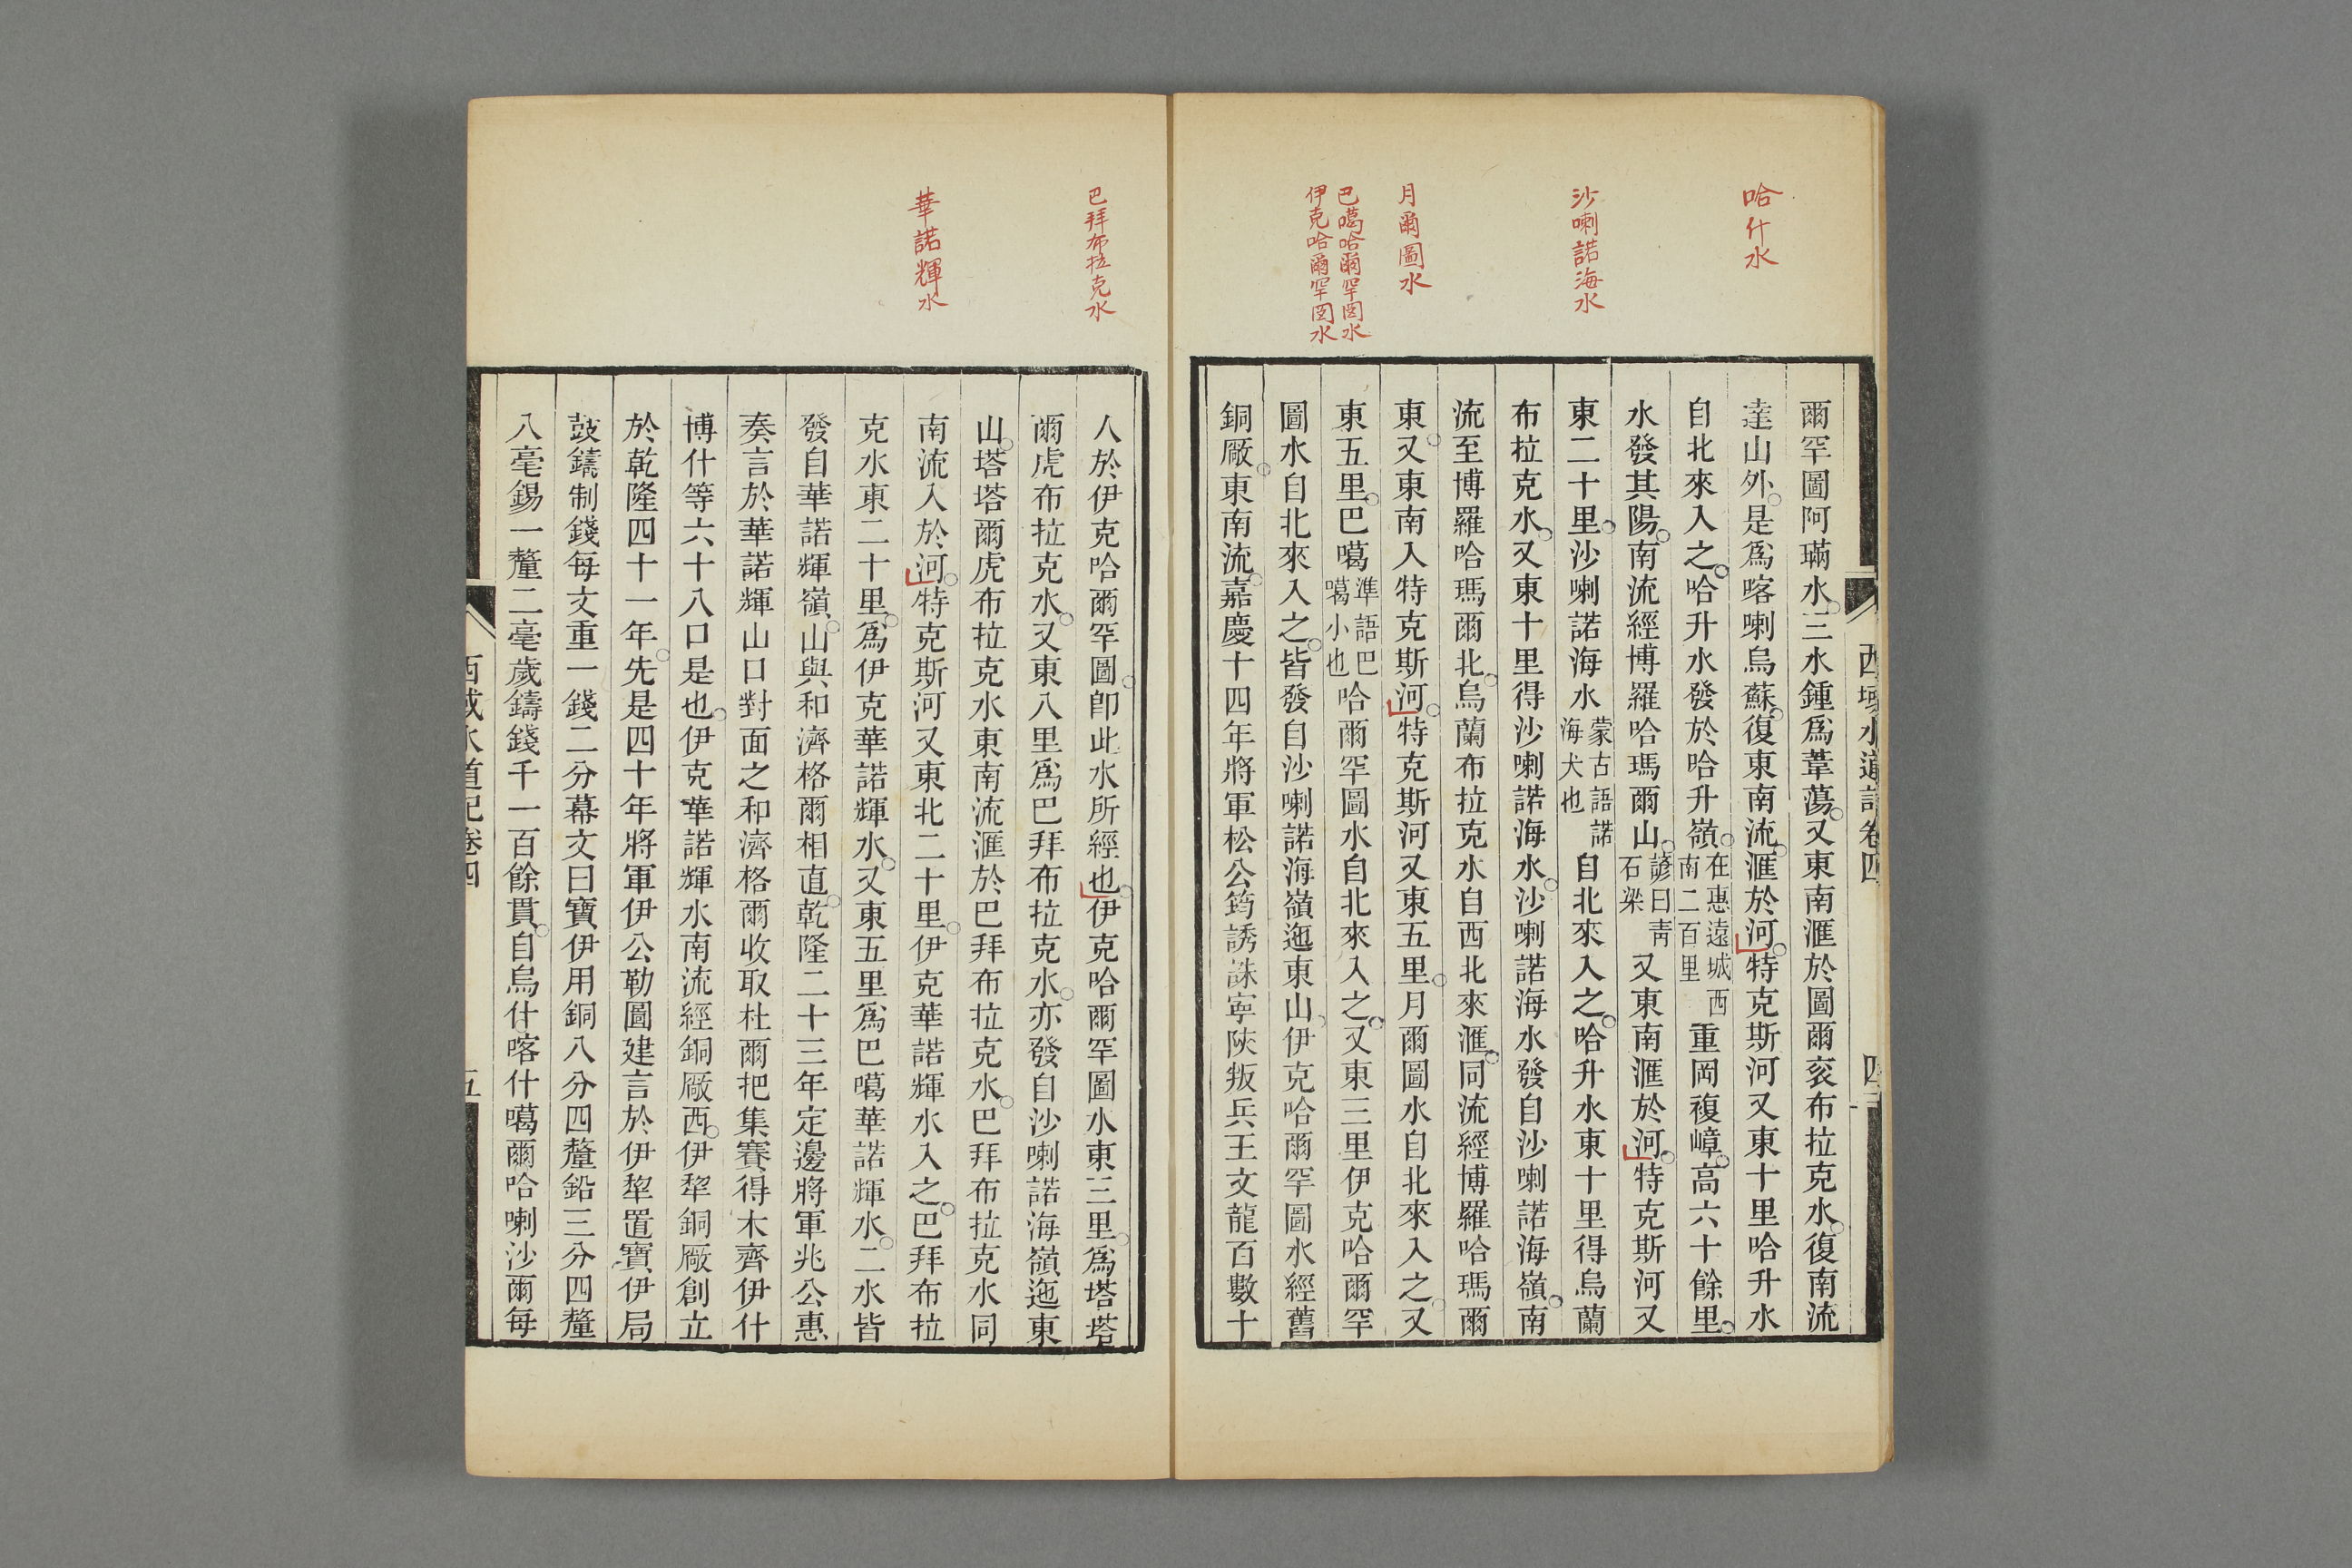 哈什水
沙喇諾海水
月爾圖水
巴噶哈爾罕圖水
伊克哈爾罕圖水
西域水道記卷四
四
爾罕圖阿璊水三水鍾爲葦蕩又東南滙於圖爾衮布拉克水復南流
達山外是爲喀喇烏蘇復東南流滙於河特克斯河又東十里哈升水
自北來入之哈升水發於哈升嶺在惠遠城西南二百里重岡複嶂高六十餘里
水發其陽南流經博羅哈瑪爾山諺曰靑石梁又東南滙於河特克斯河又
東二十里沙喇諾海水蒙古語諾海犬也自北來入之哈升水東十里得烏蘭
布拉克水又東十里得沙喇諾海水沙喇諾海水發自沙喇諾海嶺南
流至博羅哈瑪爾北烏蘭布拉克水自西北來滙同流經博羅哈瑪爾
東又東南入特克斯河特克斯河又東五里月爾圖水自北來入之又
東五里巴噶準語巴噶小也哈爾罕圖水自北來入之又東三里伊克哈爾罕
圖水自北來入之皆發自沙喇諾海嶺迤東山伊克哈爾罕圖水經舊
銅厰東南流嘉慶十四年將軍松公筠誘誅寧陝叛兵王文龍百數十
巴拜布拉克水
華諾輝水
人於伊克哈爾罕圖卽此水所經也伊克哈爾罕圖水東三里爲塔塔
爾虎布拉克水又東八里爲巴拜布拉克水亦發自沙喇諾海嶺迤東
山塔塔爾虎布拉克水東南流滙於巴拜布拉克水巴拜布拉克水同
南流入於河特克斯河又東北二十里伊克華諾輝水入之巴拜布拉
克水東二十里爲伊克華諾輝水又東五里爲巴噶華諾輝水二水皆
發自華諾輝嶺山與和濟格爾相直乾隆二十三年定邊將軍兆公惠
奏言於華諾輝山口對面之和濟格爾收取杜爾把集賽得木齊伊什
博什等六十八口是也伊克華諾輝水南流經銅厰西伊犂銅厰創立
於乾隆四十一年先是四十年將軍伊公勒圖建言於伊犂置寶伊局
鼓鑄制錢每文重一錢二分幕文曰寶伊用銅八分四釐鉛三分四釐
八毫錫一釐二毫歲鑄錢千一百餘貫自烏什喀什噶爾哈喇沙爾每
西域水道記卷四
五